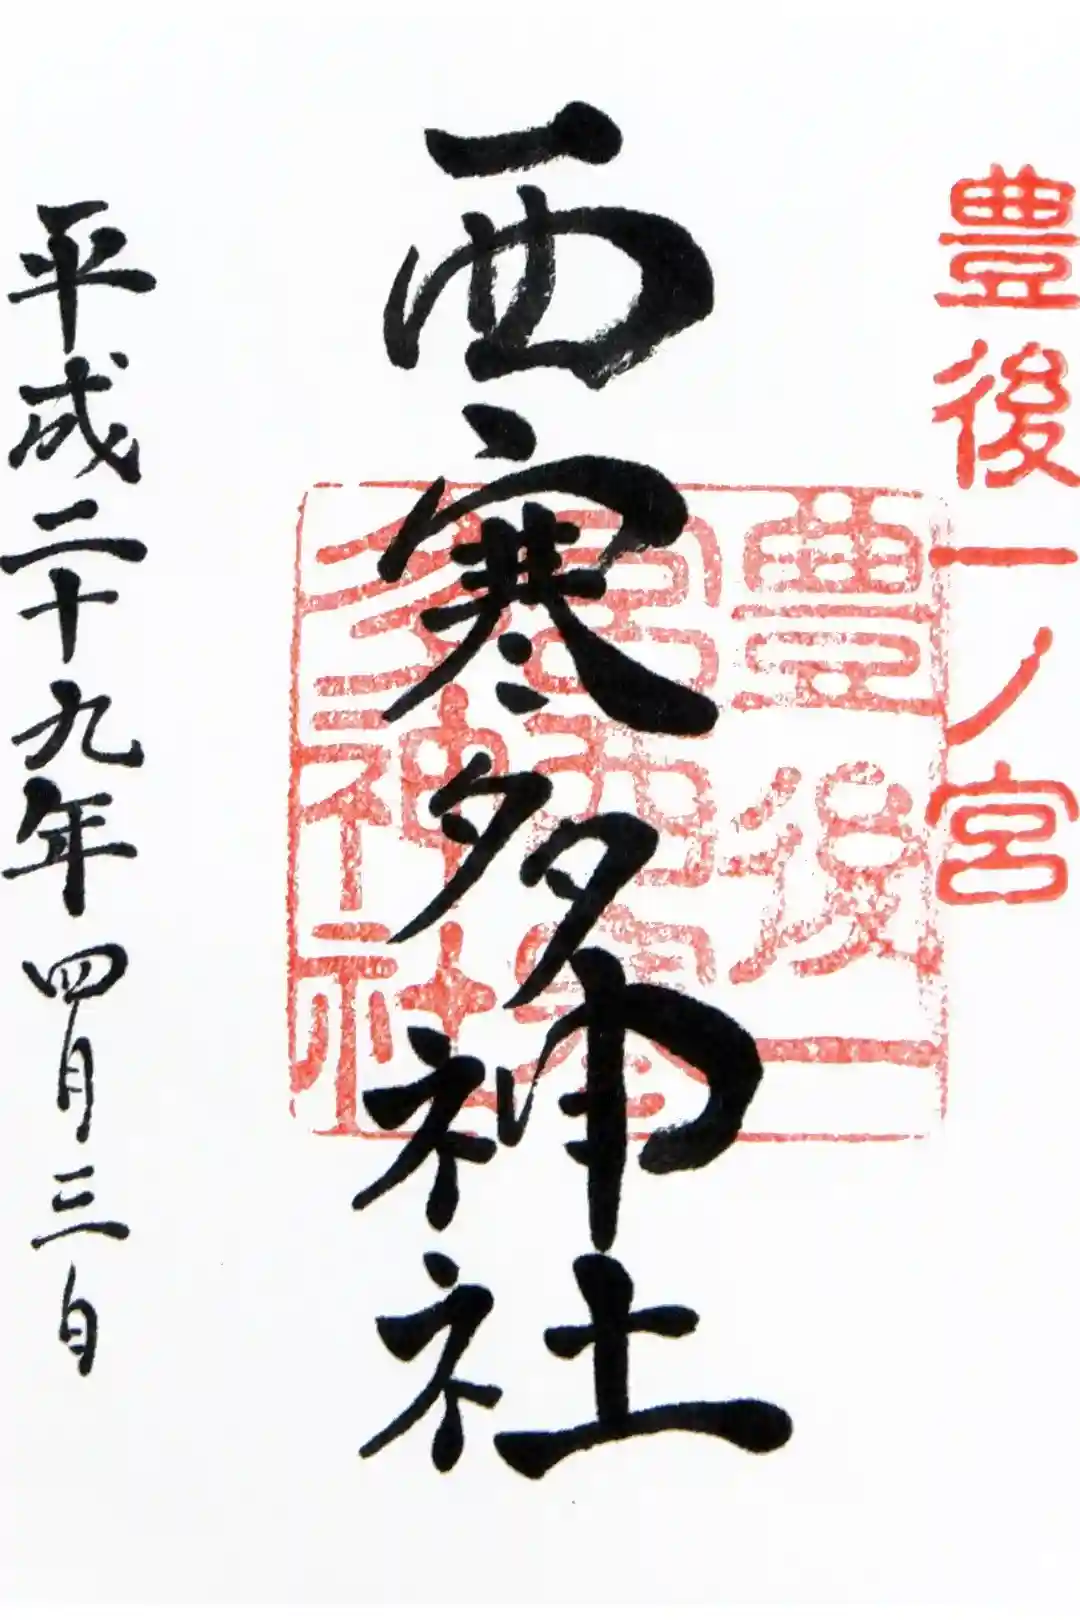 豊後一ノ宮
豊後一
宮西寒
多神社
西寒多神社
平成二十九年四月三日